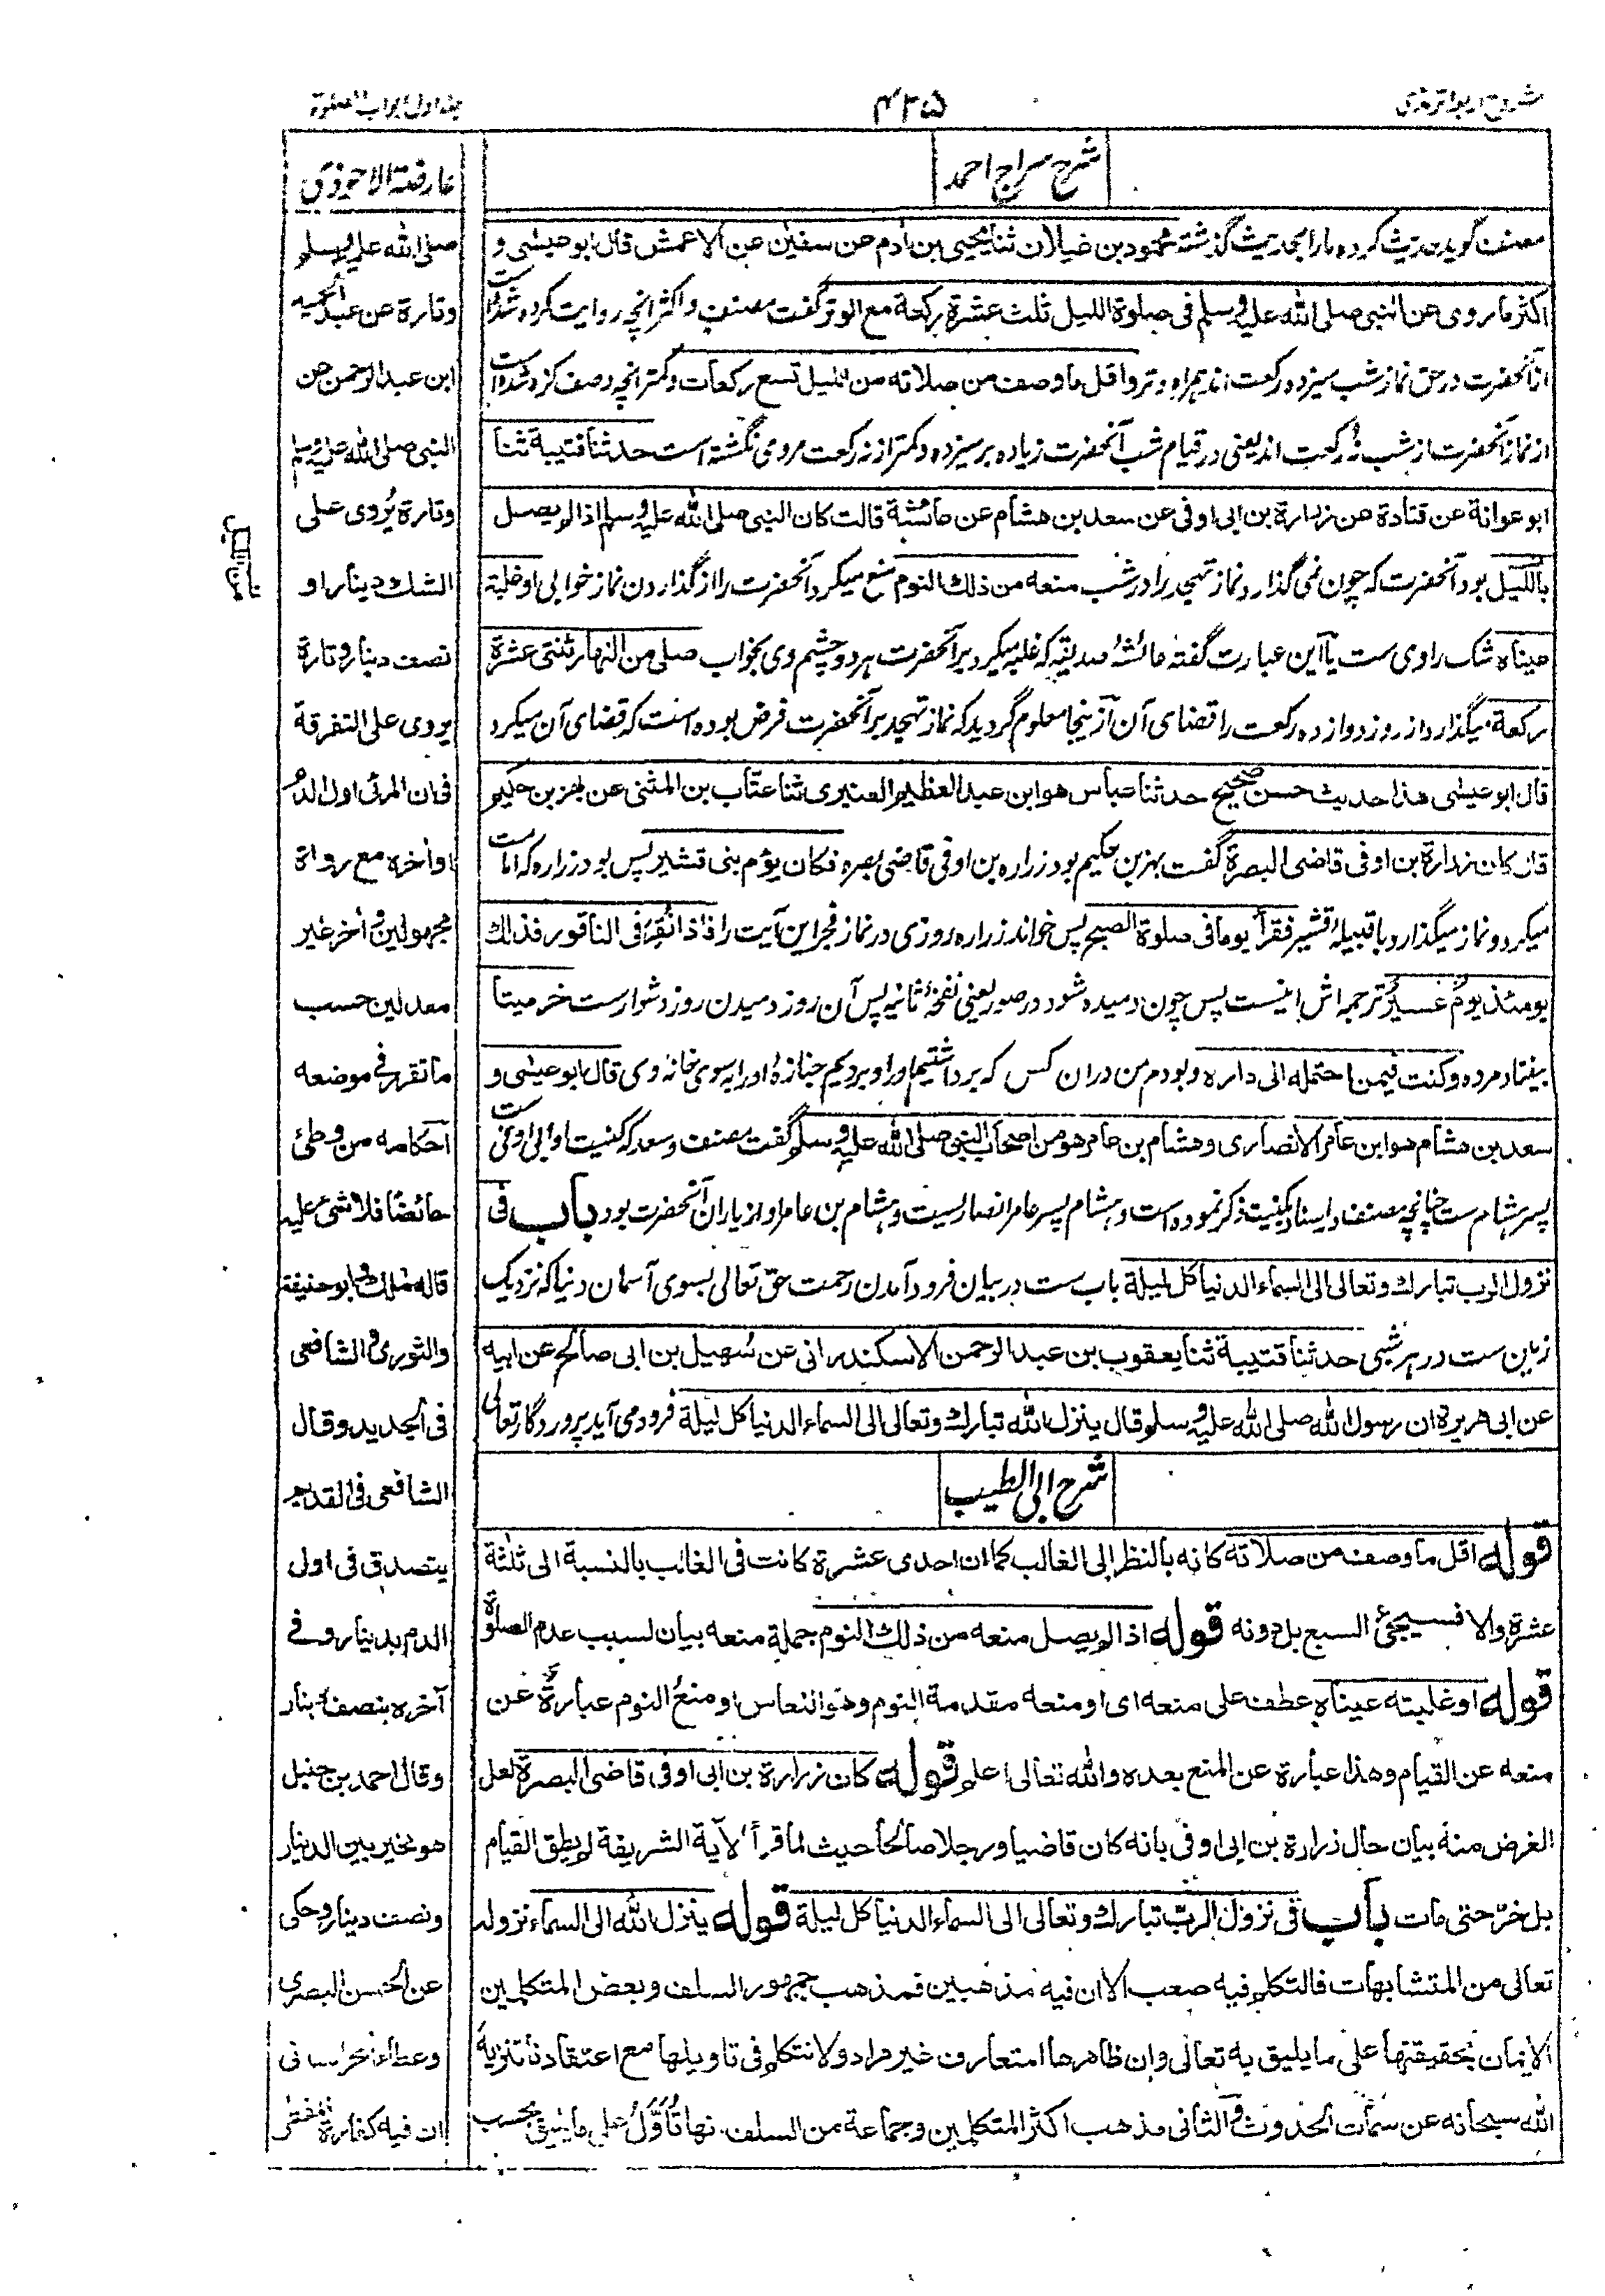 شروح اربعه ترمذی
۴۲۵
جلد اول ابواب الصلوة
شرح سراج احمد
مصنف گوید حدیث کرده ما را بحدیث گذشته محمود بن غیلان ثنا یحیی بن آدم عن سفین عن الاعمش قال ابو عیسی و
اکثر ما روی عن النبی صلی الله علیه وسلم فی صلوة اللیل ثلث عشرة رکعة مع الوتر گفت مصنف و اکثر انچه روایت کرده شده است
از آنحضرت در حق نماز شب سیزده رکعت اند بهمراه وتر و اقل ما وصف من صلاته من اللیل تسع رکعات و کمتر انچه وصف کرده شده است
از نماز آنحضرت از شب نه رکعت اند یعنی در قیام شب آنحضرت زیاده بر سیزده و کمتر از نه رکعت مروی نگشته است حدثنا قتیبة ثنا
ابو عوانة عن قتادة عن زرارة بن ابی اوفی عن سعد بن هشام عن عائشة قالت کان النبی صلی الله علیه وسلم اذا لم یصل
باللیل بود آنحضرت که چون نمی گذارد نماز تهجد را در شب منعه من ذلك النوم منع میکرد آنحضرت را از گذاردن نماز خوابی او غلبته
عیناه شک راوی ست یا این عبارت گفته عائشه صدیقه که غلبه میکرد بر آنحضرت هر دو چشم وی بخواب صلی من النهار ثنتی عشرة
رکعة میگذارد از روز دوازده رکعت را قضای آن از ینجا معلوم گردید که نماز تهجد بر آنحضرت فرض بوده است که قضای آن میکرد
قال ابو عیسی هذا حدیث حسن صحیح حدثنا عباس هو ابن عبد العظیم العنبری ثنا عتاب بن المثنی عن بهز بن حکیم
قال کان زرارة بن اوفی قاضی البصرة گفت بهز بن حکیم بود زراره بن اوفی قاضی بصره فکان یؤم بنی قشیر پس بود زراره که امامت
میکرد و نماز میگذارد با قبیلۀ قشیر فقرأ یوما فی صلوة الصبح پس خواند زراره روزی در نماز فجر این آیت را فاذا نقر فی الناقور فذلك
یومئذ یوم عسیر ترجمه اش اینست پس چون دمیده شود در صور یعنی نفخۀ ثانیه پس آن روز دمیدن روز دشوار ست خر میتا
بیفتاد مرده و کنت فیمن احتمله الی داره و بودم من دران کس که برداشتیم او را و بردیم جنازۀ او را به سوی خانه وی قال ابو عیسی و
سعد بن هشام هو ابن عامر الانصاری و هشام بن عامر هو من اصحاب النبی صلی الله علیه وسلم گفت مصنف و سعد که کنیت او ابی اوفی ست
پسر هشام ست چنانچه مصنف در اسناد بکنیت ذکر نموده است و هشام پسر عامر انصاریست و هشام بن عامر او از یاران آنحضرت بود باب فی
نزول الرب تبارك وتعالی الی السماء الدنیا کل لیلة باب ست در بیان فرود آمدن رحمت حق تعالی بسوی آسمان دنیا که نزدیک
زمین ست در هر شبی حدثنا قتیبة ثنا یعقوب بن عبد الرحمن الاسکندرانی عن سهیل بن ابی صالح عن ابیه
عن ابی هریرة ان رسول الله صلی الله علیه وسلم قال ینزل الله تبارك وتعالی الی السماء الدنیا کل لیلة فرود می آید پروردگار تعالی
شرح ابی الطیب
قوله اقل ما وصف من صلاته کانه بالنظر الی الغالب کما ان احدی عشرة کانت فی الغالب بالنسبة الی ثلثة
عشرة والا فسیجئ السبع بل دونه قوله اذا لم یصل منعه من ذلك النوم جملة منعه بیان لسبب عدم الصلوة
قوله او غلبته عیناه عطف علی منعه ای او منعه مقدمة النوم وهو النعاس او منع النوم عبارة عن
منعه عن القیام وهذا عبارة عن المنع بعده والله تعالی اعلم قوله کان زرارة بن ابی اوفی قاضی البصرة لعل
الغرض منه بیان حال زرارة بن ابی اوفی بانه کان قاضیا ورجلا صالحا حیث لما قرأ الآیة الشریفة لم یطق القیام
بل خر حتی مات باب فی نزول الرب تبارك وتعالی الی السماء الدنیا کل لیلة قوله ینزل الله الی السماء نزوله
تعالی من المتشابهات فالتکلم فیه صعب الا ان فیه مذهبین فمذهب جمهور السلف وبعض المتکلمین
الایمان بحقیقتها علی ما یلیق به تعالی وان ظاهرها المتعارف غیر مراد ولا نتکلم فی تاویلها مع اعتقادنا تنزیه
الله سبحانه عن سمات الحدوث والثانی مذهب اکثر المتکلمین وجماعة من السلف انها تأول علی ما یلیق بحسب
عارضة الاحوذی
صلی الله علیه وسلم
وتارة عن عبد الحمید
ابن عبد الرحمن عن
النبی صلی الله علیه وسلم
وتارة یروی علی
الشك دینار او
نصف دینار وتارة
یروی علی التفرقة
فی ان المرئی اول الدم
او آخره مع رواة
مجهولین وأخر غیر
معدلین حسب
ما تقرر فی موضعه
احکامه من وطئ
حائضا فلا شئ علیه
قاله ملك وابو حنیفة
والثوری والشافعی
فی الجدید وقال
الشافعی فی القدیم
یتصدق فی اول
الدم بدینار وفی
آخره بنصف دینار
وقال احمد بن حنبل
هو مخیر بین الدینار
ونصف دینار وحکی
عن الحسن البصری
وعطاء الخراسانی
ان فیه کفارة المفطر